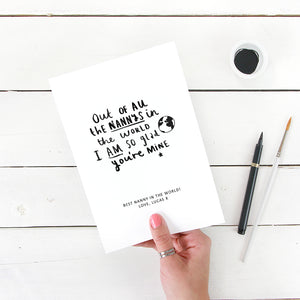 Out OF ALL
the NANNYS in
the WORLD
I AM so glad
you're MINE
BEST NANNY IN THE WORLD!
LOVE, LUCAS X